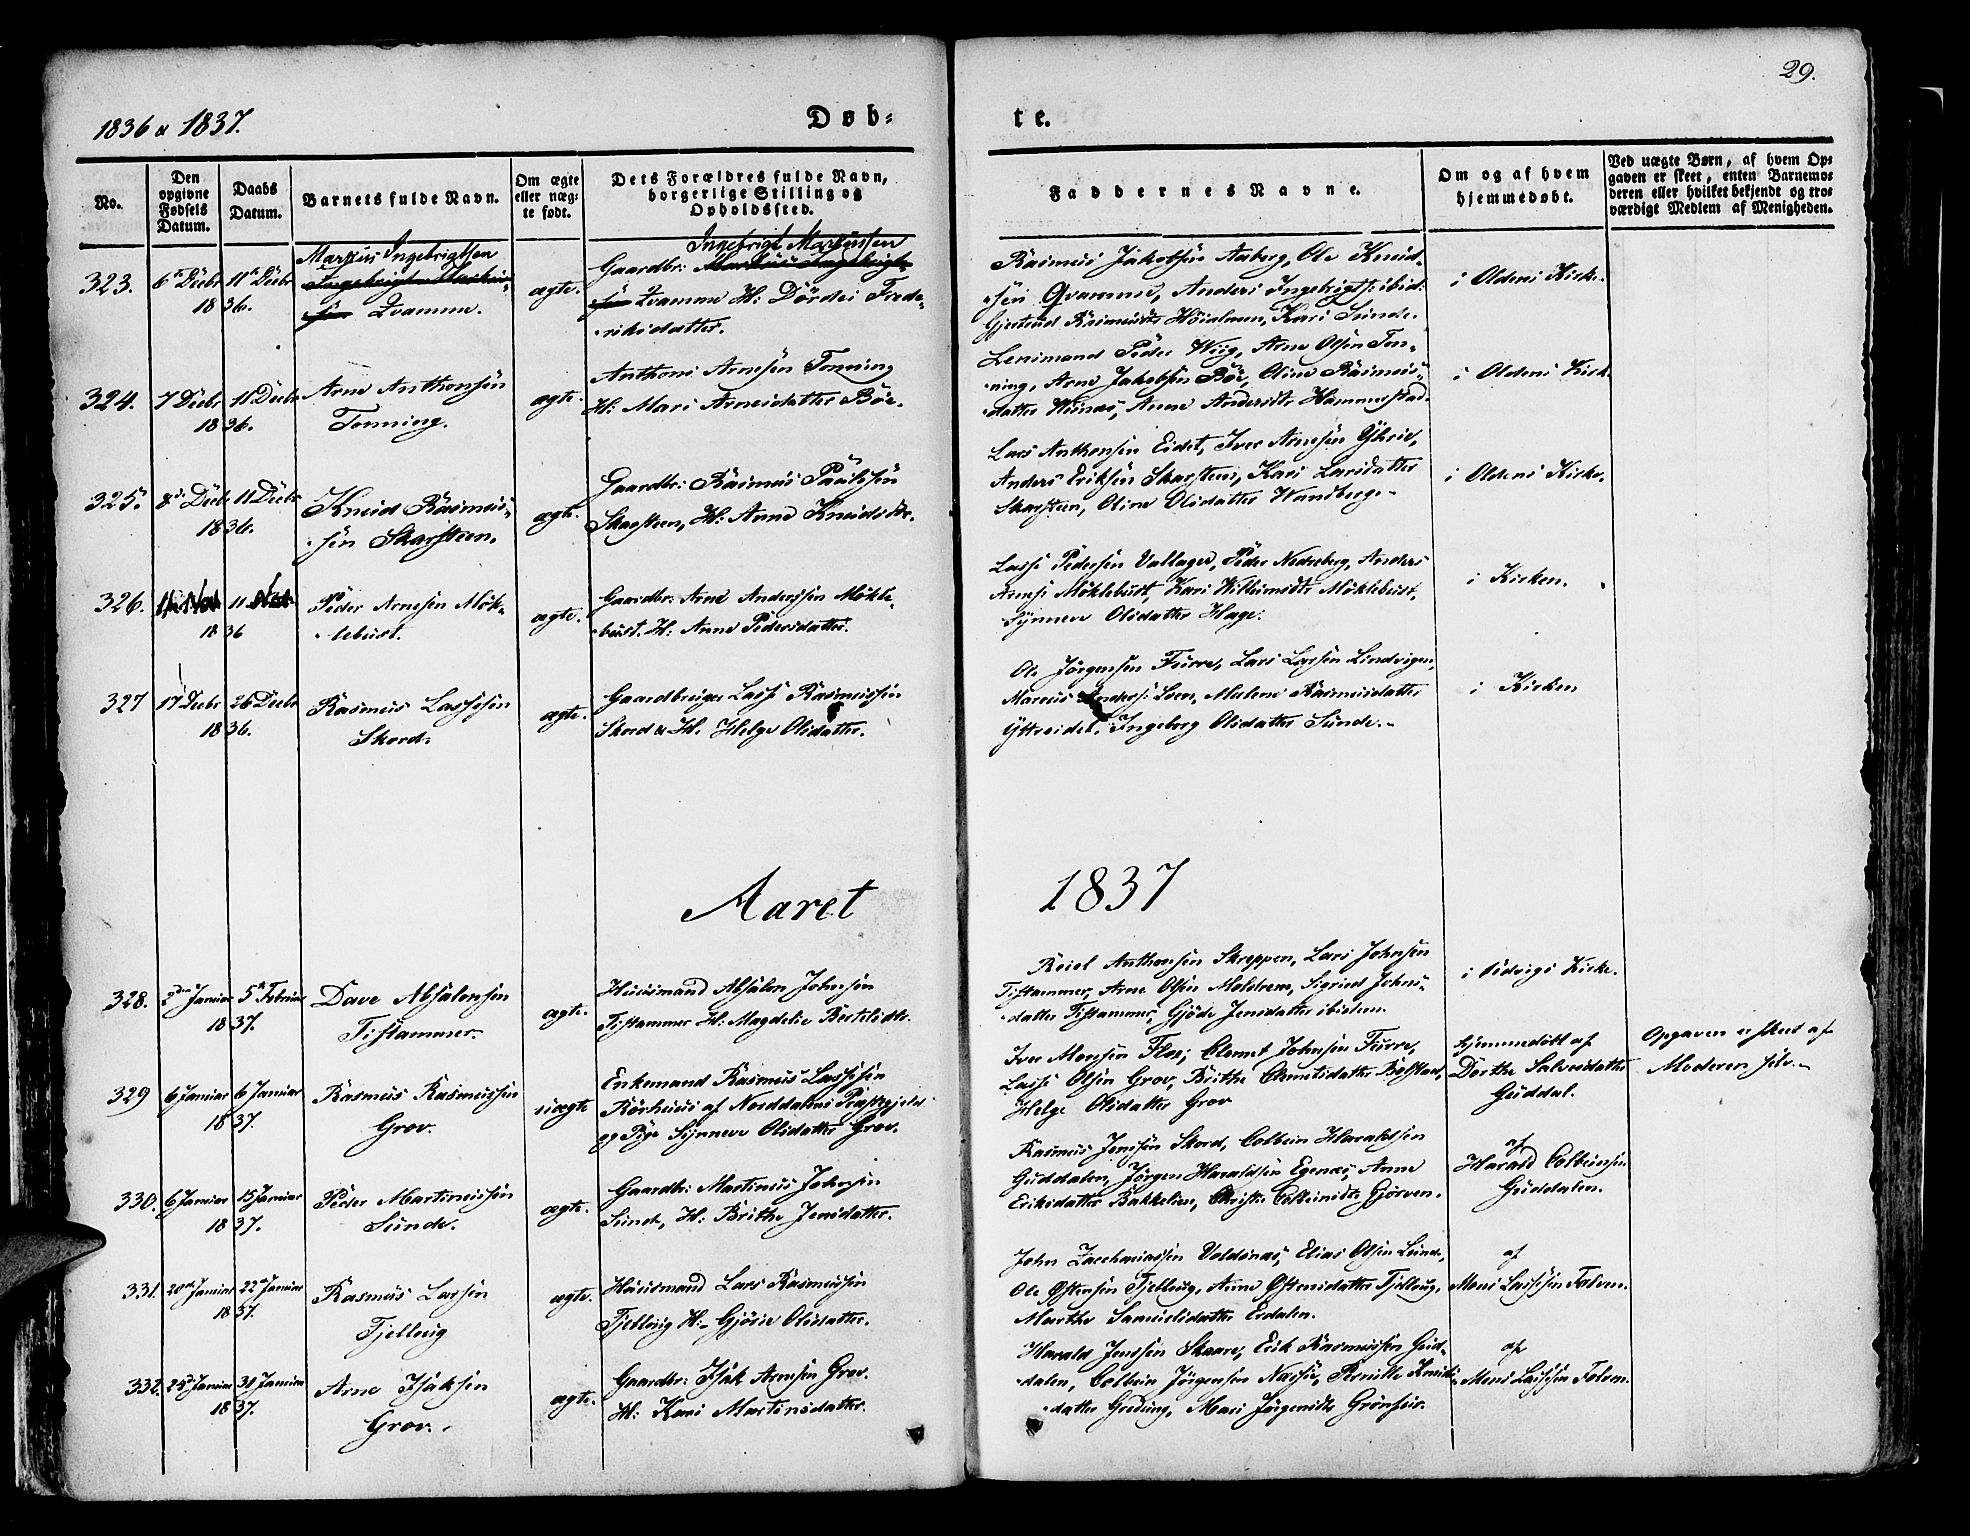 29.
1836 a 1837.
Døb-
te.
No.
Den opgivne Fødsels Datum.
Daabs Datum.
Barnets fulde Navn.
Om ægte eller næg-
te født.
Dets Forældres fulde Navn,
borgerlige Stilling og
Opholdssted.
Faddernes Navne.
Om og af hvem
hjemmedøbt.
Ved uægte Børn, af hvem Op-
gaven er skeet, enten Barnemo-
deren eller hvilket bekjendt og tro-
værdigt Medlem af Menigheden.
323.
6te Decbr 11te Decbr
1836.
Markus Ingebrigtsen
Qvamme.
ægte.
Ingebrigt Markussen
Gaardbr:
Qvamme H: Dördei Frede-
riksdatter.
Rasmus Jakobsen Aaberg, Ole Knud-
sen Qvamme, Anders Ingebrigts: ibid:
Gjertrud Rasmusdtr Höialmen, Kari Sunde.
i Oldens Kirke.
324.
7 Decbr 11 Decbr
1836.
Arne Anthonsen
Tonning.
ægte.
Anthoni Arnesen Tonning
H: Mari Arnesdatter Böe.
Lensmand Peder Wiig, Arne Olsen Ton-
ning, Arne Jakobsen Böe, Oline Rasmus-
datter, Anne Andersdtr Hammerstad.
i Oldens Kirk.
325.
8de Decbr 11 Decbr
1836.
Knud Rasmus-
sen Skarsteen.
ægte.
Gaardbr: Rasmus Paulsen
Skarsteen, H: Anne Knudsdtr.
Lars Anthonsen Eidet, Iver Arnesen
Anders Eriksen Skarsteen, Kari Larsdatter
Skarsteen, Oline Olsdatter Wandberg.
i Oldens Kirke.
326.
11 Nov
1836
Peder Arnesen Mök-
lebust.
ægte.
Gaardbr: Arne Anderssen Mökle-
bust. H: Anne Pedersdatter.
Lasse Pedersen Vallager, Peder Nedreberg, Anders
Arnes: Möklebust, Kari Willumsdtr Möklebust,
Synneve Olsdatter Hage.
i Kirken.
327
17 Decbr 26 Decbr
1836.
Rasmus Lassesen
Skord.
ægte.
Gaardbruger Lasse Rasmussen
Skord & H: Helge Olsdatter.
Ole Jörgensen Furre, Lars Larsen Lindvigen,
Marcus Anders: Loen, Malene Rasmusdatter
Yttreidet, Ingeborg Olsdatter Sunde.
i Kirken
Aaret
1837
328.
2den Januar 5te Februar
1837.
Dave Absalonsen
Tistammer.
ægte.
Huusmand Absalon Johnsen
Tistammer H: Magdelie Bertelsdtr.
Reiel Anthonsen Skreppen, Lars Johnsen
Tistammer, Arne Olsen Meldrem, Sigrud Johns-
datter Tistammer, Gjöde Jensdatter ibidem.
i Udvigs Kirke.
329
6 Januar 6 Januar
1837.
Rasmus Rasmussen
Grov.
uægte
Enkemand Rasmus Lassesen
Rörhuus af Norddalens Præstegjeld
og Pige Synneve Olsdatter Grov.
Iver Monsen Floe, Clemet Johnsen Furre,
Lasse Olsen Grov, Brithe Clemetsdatter Bolstad,
Helge Olsdatter Grov
hjemmedöbt af
Dorthe Salvesdatter
Guddal.
Opgaven er skeet af
Moderen selv.
330.
6 Januar 15 Januar
1837.
Peder Martinussen
Sunde.
ægte.
Gaardbr: Martinus Johnsen
Sunde, H: Brithe Jensdatter.
Rasmus Jenssen Skord, Colbein Haraldsen
Guddalen, Jörgen Haraldsen Egenæs, Anne
Eriksdatter Bakkelien, Christie Colbeinsdtr Gjörven.
af
Harald Colbeinsen
Guddalen.
331.
20de Januar 22de Januar
1837.
Rasmus Larsen
Tjellaug
ægte.
Huusmand Lars Rasmussen
Tjellaug H: Gjörie Olsdatter.
John Zacchariassen Valdsnæs, Elias Olsen Lunde,
Ole Østensen Tjellaug, Anne Østensdatter Tjellaug,
Marthe Samuelsdatter Erdalen.
af
Mons Lassesen Folven.
332.
25de Januar 31 Januar
1837.
Arne Isaksen
Grov.
ægte.
Gaardbr: Isak Arnesen Grov.
H: Kari Martinsdatter.
Harald Jenssen Skaare, Erik Rasmussen Gud-
dalen, Colbein Jörgensen Næsse, Pernille Knuds-
datter Greding, Mari Jörgensdtr Grönfur.
af
Mons Lassesen Folven.